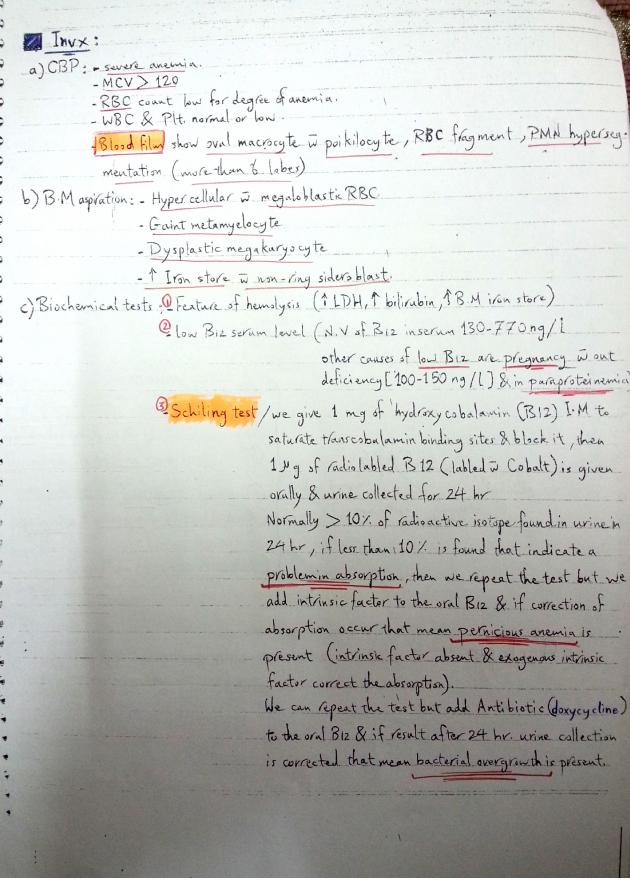 Invx:
a) CBP: - severe anemia.
- MCV > 120
- RBC count low for degree of anemia.
- WBC & Plt. normal or low.
- Blood film show oval macrocyte w̄ poikilocyte, RBC fragment, PMN hyperseg-
mentation (more than 6 lobes)
b) B.M aspiration: - Hyper cellular w̄ megaloblastic RBC
- Gaint metamyelocyte
- Dysplastic megakaryocyte
- ↑ Iron store w̄ non-ring sideroblast.
c) Biochemical tests: ① Feature of hemolysis (↑LDH, ↑ bilirubin, ↑B.M iron store)
② low B12 serum level (N.V of B12 in serum 130-770 ng/l
other causes of low B12 are pregnancy w̄ out
deficiency [100-150 ng/l] & in paraproteinemia
③ Schiling test / we give 1 mg of hydroxycobalamin (B12) I.M to
saturate transcobalamin binding sites & block it, then
1 µg of radiolabled B12 (labled w̄ Cobalt) is given
orally & urine collected for 24 hr
Normally > 10% of radioactive isotope found in urine in
24 hr, if less than 10% is found that indicate a
problem in absorption, then we repeat the test but we
add intrinsic factor to the oral B12 & if correction of
absorption occur that mean pernicious anemia is
present (intrinsic factor absent & exogenous intrinsic
factor correct the absorption).
We can repeat the test but add Antibiotic (doxycycline)
to the oral B12 & if result after 24 hr. urine collection
is corrected that mean bacterial overgrowth is present.